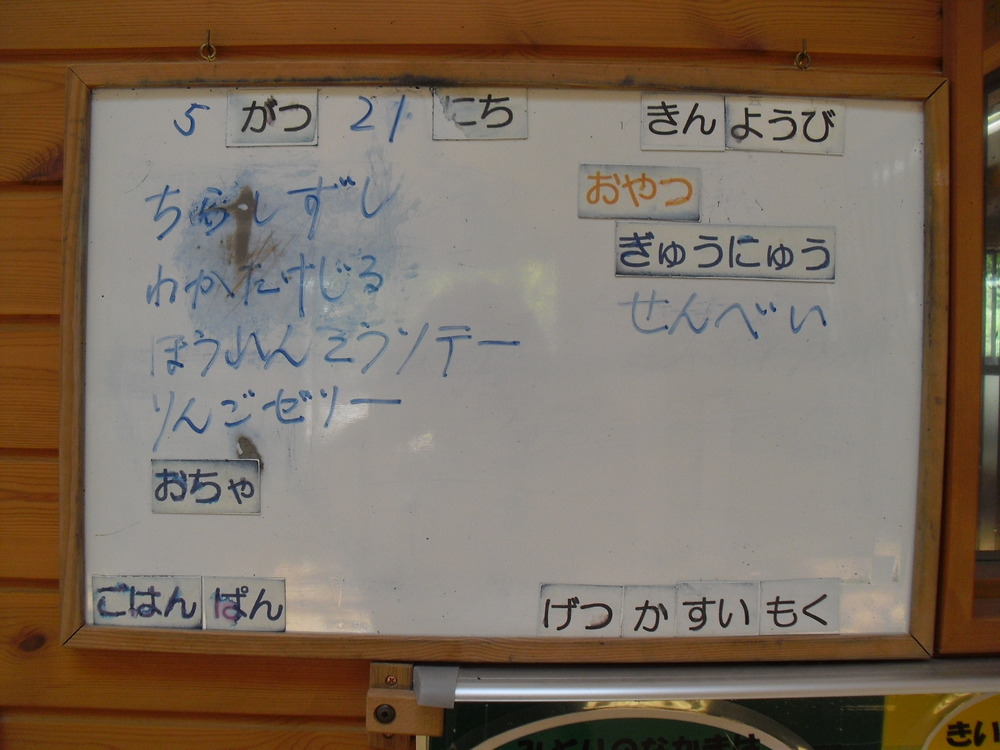 5 がつ 21 にち きん ようび
ちらしずし
わかたけじる
ほうれんそうソテー
りんごゼリー
おちゃ
おやつ
ぎゅうにゅう
せんべい
ごはん ぱん
げつ か すい もく
きい